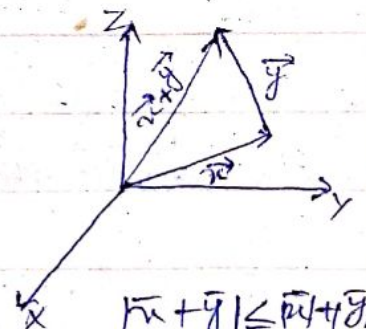 Z
x⃗+y⃗
y⃗
x⃗
Y
X
|x̄ + ȳ| ≤ |x̄| + |ȳ|